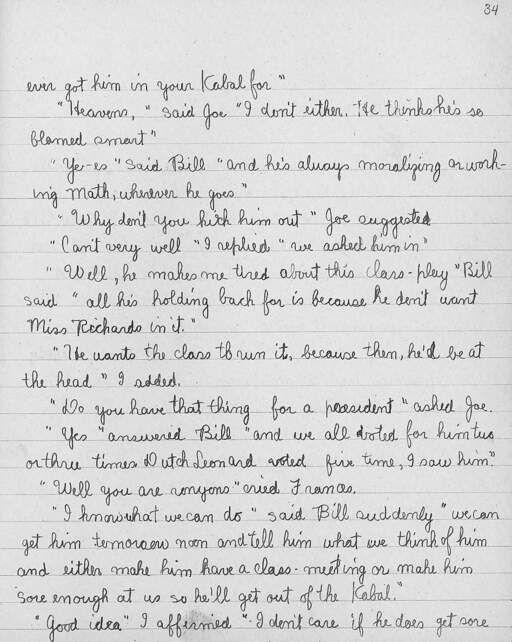 34
ever got him in your Kabal for"
"Heavens," said Joe "I don't either. He thinks he's so
blamed smart"
"Ye-es" said Bill "and he's always moralizing or work-
ing Math, wherever he goes"
"Why don't you kick him out" Joe suggested
"Can't very well" I replied "we asked him in"
"Well, he makes me tired about this class-play" Bill
said "all he's holding back for is because he don't want
Miss Richards in it."
"He wants the class to run it, because then, he'd be at
the head" I added.
"Do you have that thing for a president" asked Joe.
"Yes" answered Bill "and we all voted for him two
or three times Dutch Leonard voted five time, I saw him."
"Well you are" cried Frances.
"I know what we can do" said Bill suddenly "we can
get him tomorrow noon and tell him what we think of him
and either make him have a class-meeting or make him
sore enough at us so he'll get out of the Kabal."
"Good idea" I affirmed "I don't care if he does get sore